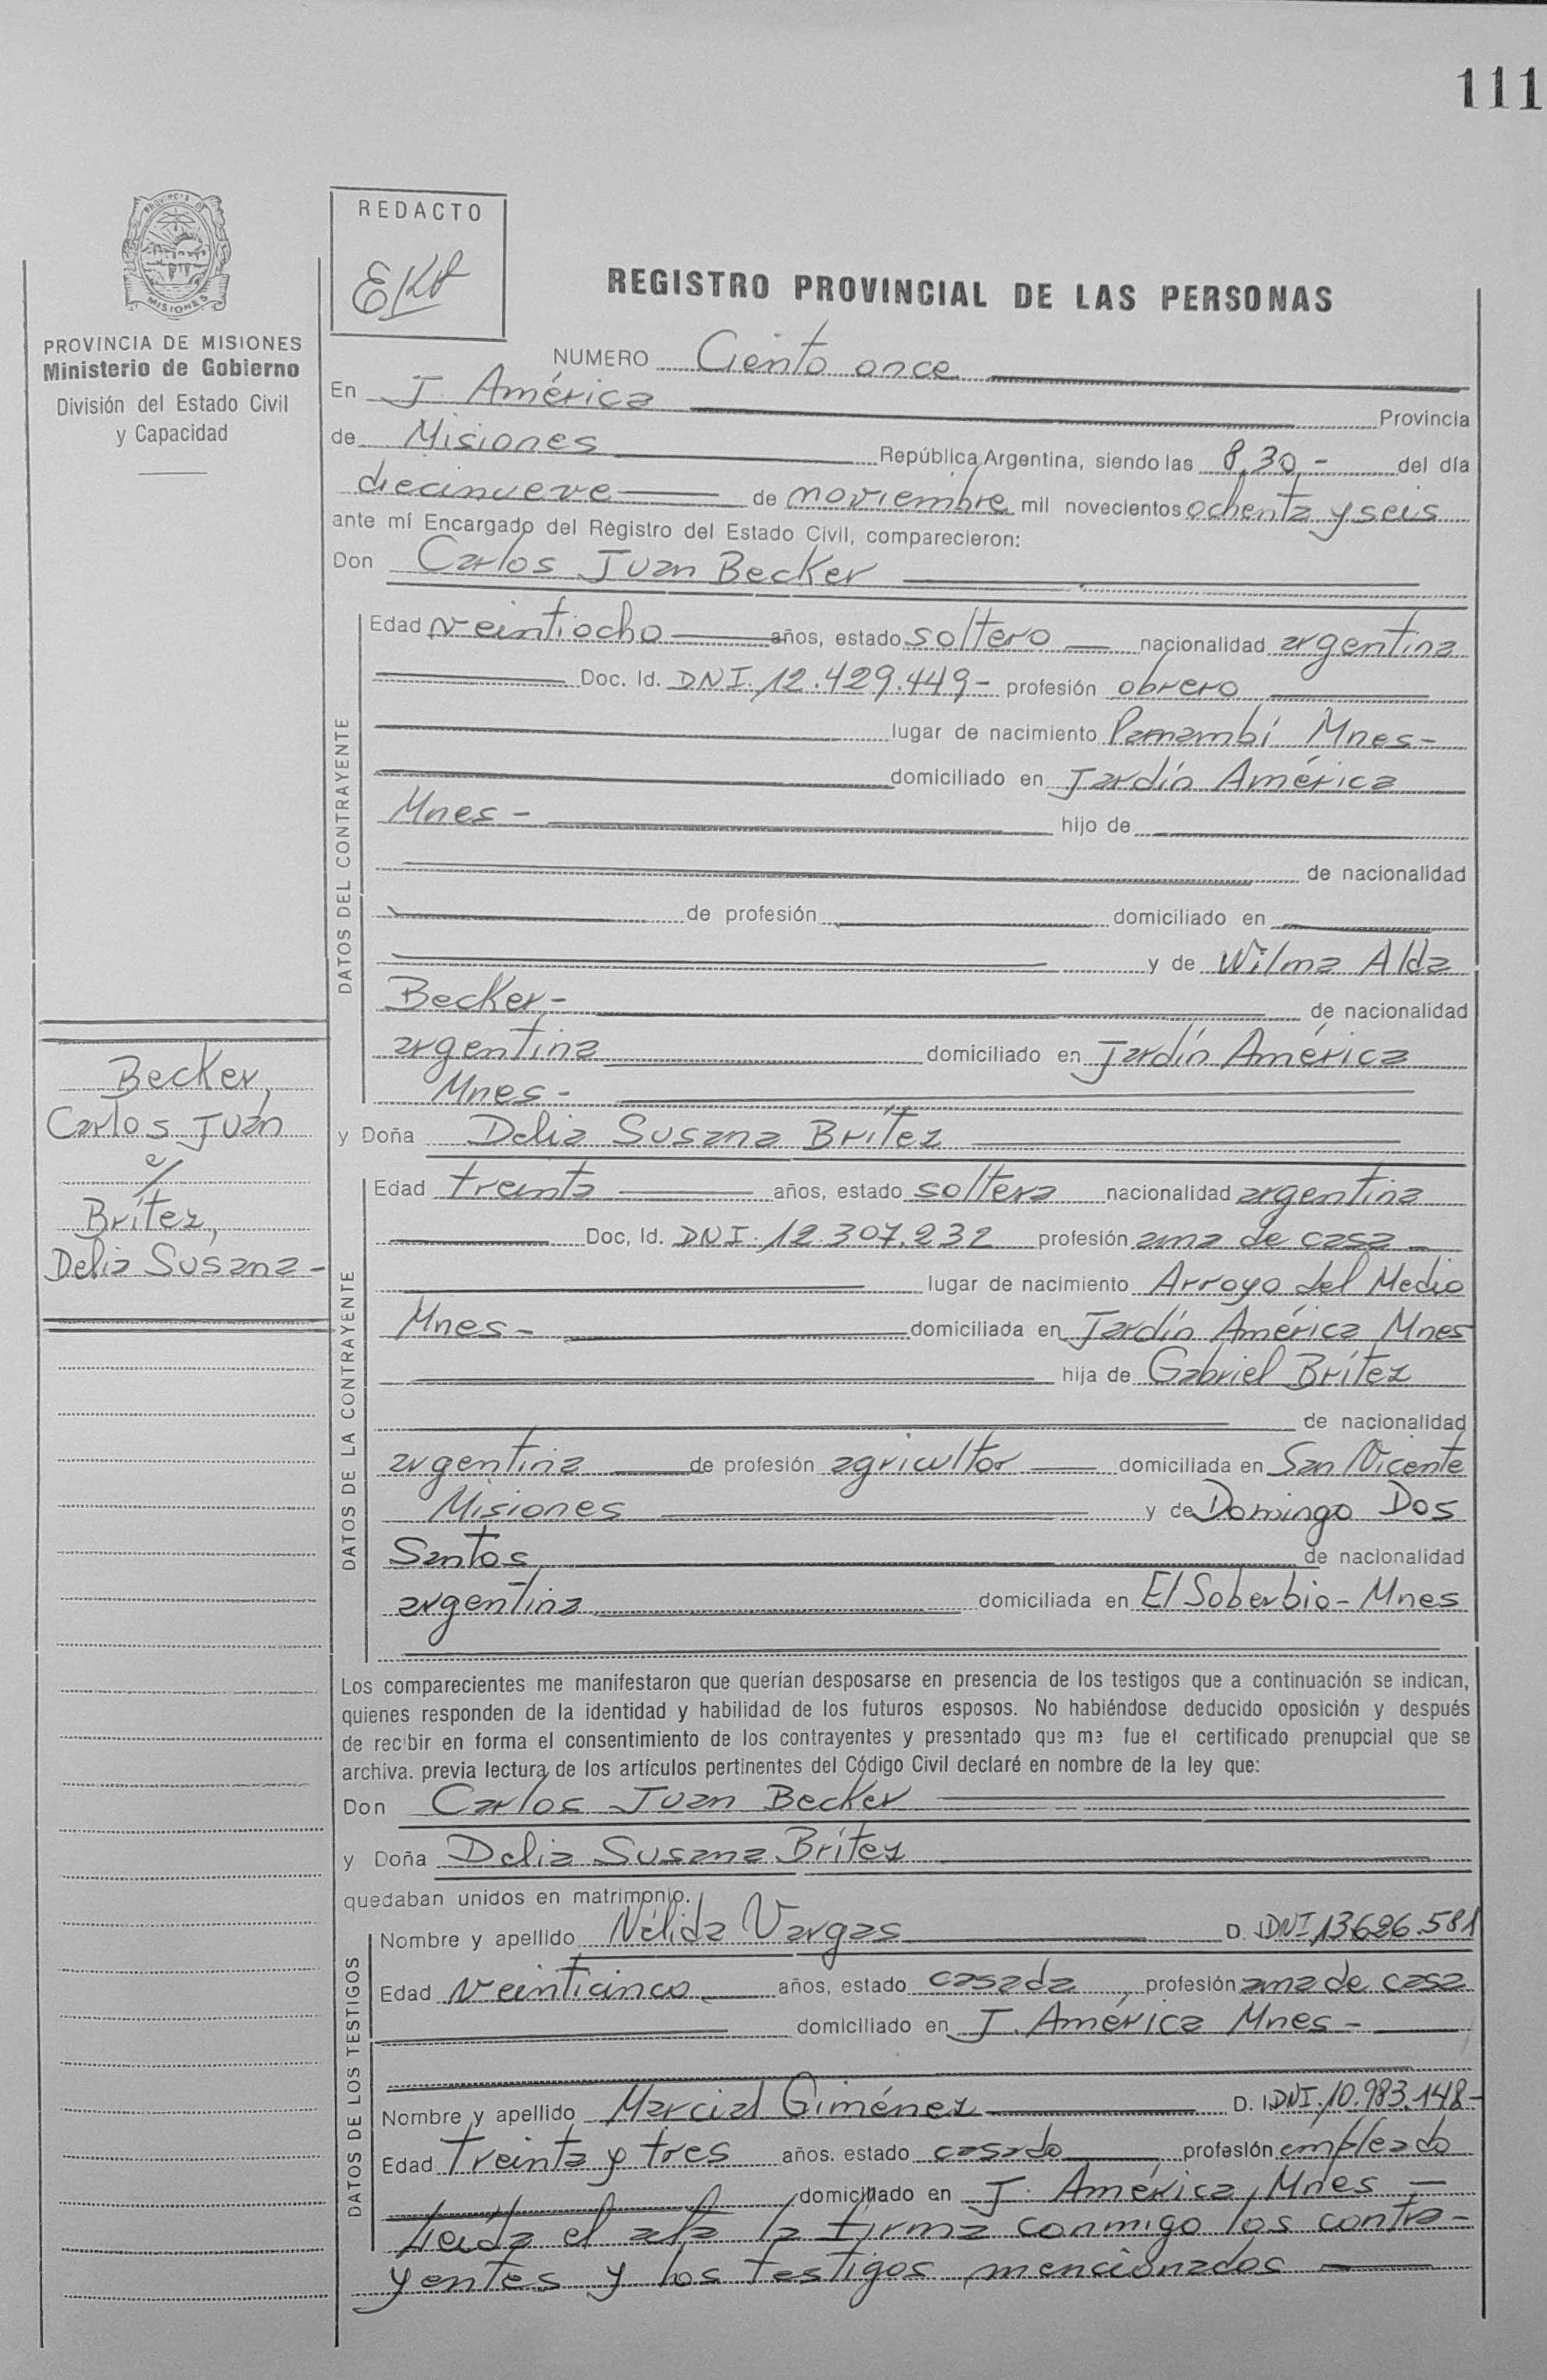 111
PROVINCIA DE MISIONES
Ministerio de Gobierno
División del Estado Civil
y Capacidad
REDACTO
REGISTRO PROVINCIAL DE LAS PERSONAS
NUMERO Ciento once
En J. América Provincia
de Misiones República Argentina, siendo las 8,30 - del día
diecinueve de noviembre mil novecientos ochenta y seis
ante mí Encargado del Registro del Estado Civil, comparecieron:
Don Carlos Juan Becker
DATOS DEL CONTRAYENTE
Edad veintiocho años, estado soltero nacionalidad argentina
Doc. Id. DNI. 12.429.449 - profesión obrero
lugar de nacimiento Panambí Mnes -
domiciliado en Jardín América
Mnes - hijo de
de nacionalidad
de profesión domiciliado en
y de Wilma Alda
Becker - de nacionalidad
argentina domiciliado en Jardín América
Mnes -
Becker,
Carlos Juan
c/
Brítez,
Delia Susana -
y Doña Delia Susana Brítez
DATOS DE LA CONTRAYENTE
Edad treinta años, estado soltera nacionalidad argentina
Doc, Id. DNI. 12.307.232 profesión ama de casa
lugar de nacimiento Arroyo del Medio
Mnes - domiciliada en Jardín América Mnes
hija de Gabriel Brítez
de nacionalidad
argentina de profesión agricultor domiciliada en San Vicente
Misiones y de Dominga Dos
Santos de nacionalidad
argentina domiciliada en El Soberbio - Mnes
Los comparecientes me manifestaron que querían desposarse en presencia de los testigos que a continuación se indican,
quienes responden de la identidad y habilidad de los futuros esposos. No habiéndose deducido oposición y después
de recibir en forma el consentimiento de los contrayentes y presentado que me fue el certificado prenupcial que se
archiva. previa lectura de los artículos pertinentes del Código Civil declaré en nombre de la ley que:
Don Carlos Juan Becker
y Doña Delia Susana Britez
quedaban unidos en matrimonio.
DATOS DE LOS TESTIGOS
Nombre y apellido Nélida Vargas D. I DNI 13626.581
Edad veinticinco años, estado casada, profesión ama de casa
domiciliado en J. América Mnes -
Nombre y apellido Marcial Giménez D. I DNI. 10.983.148 -
Edad treinta y tres años. estado casado, profesión empleado
domiciliado en J. América, Mnes -
Leída el acta la firma conmigo los contra-
yentes y los testigos mencionados